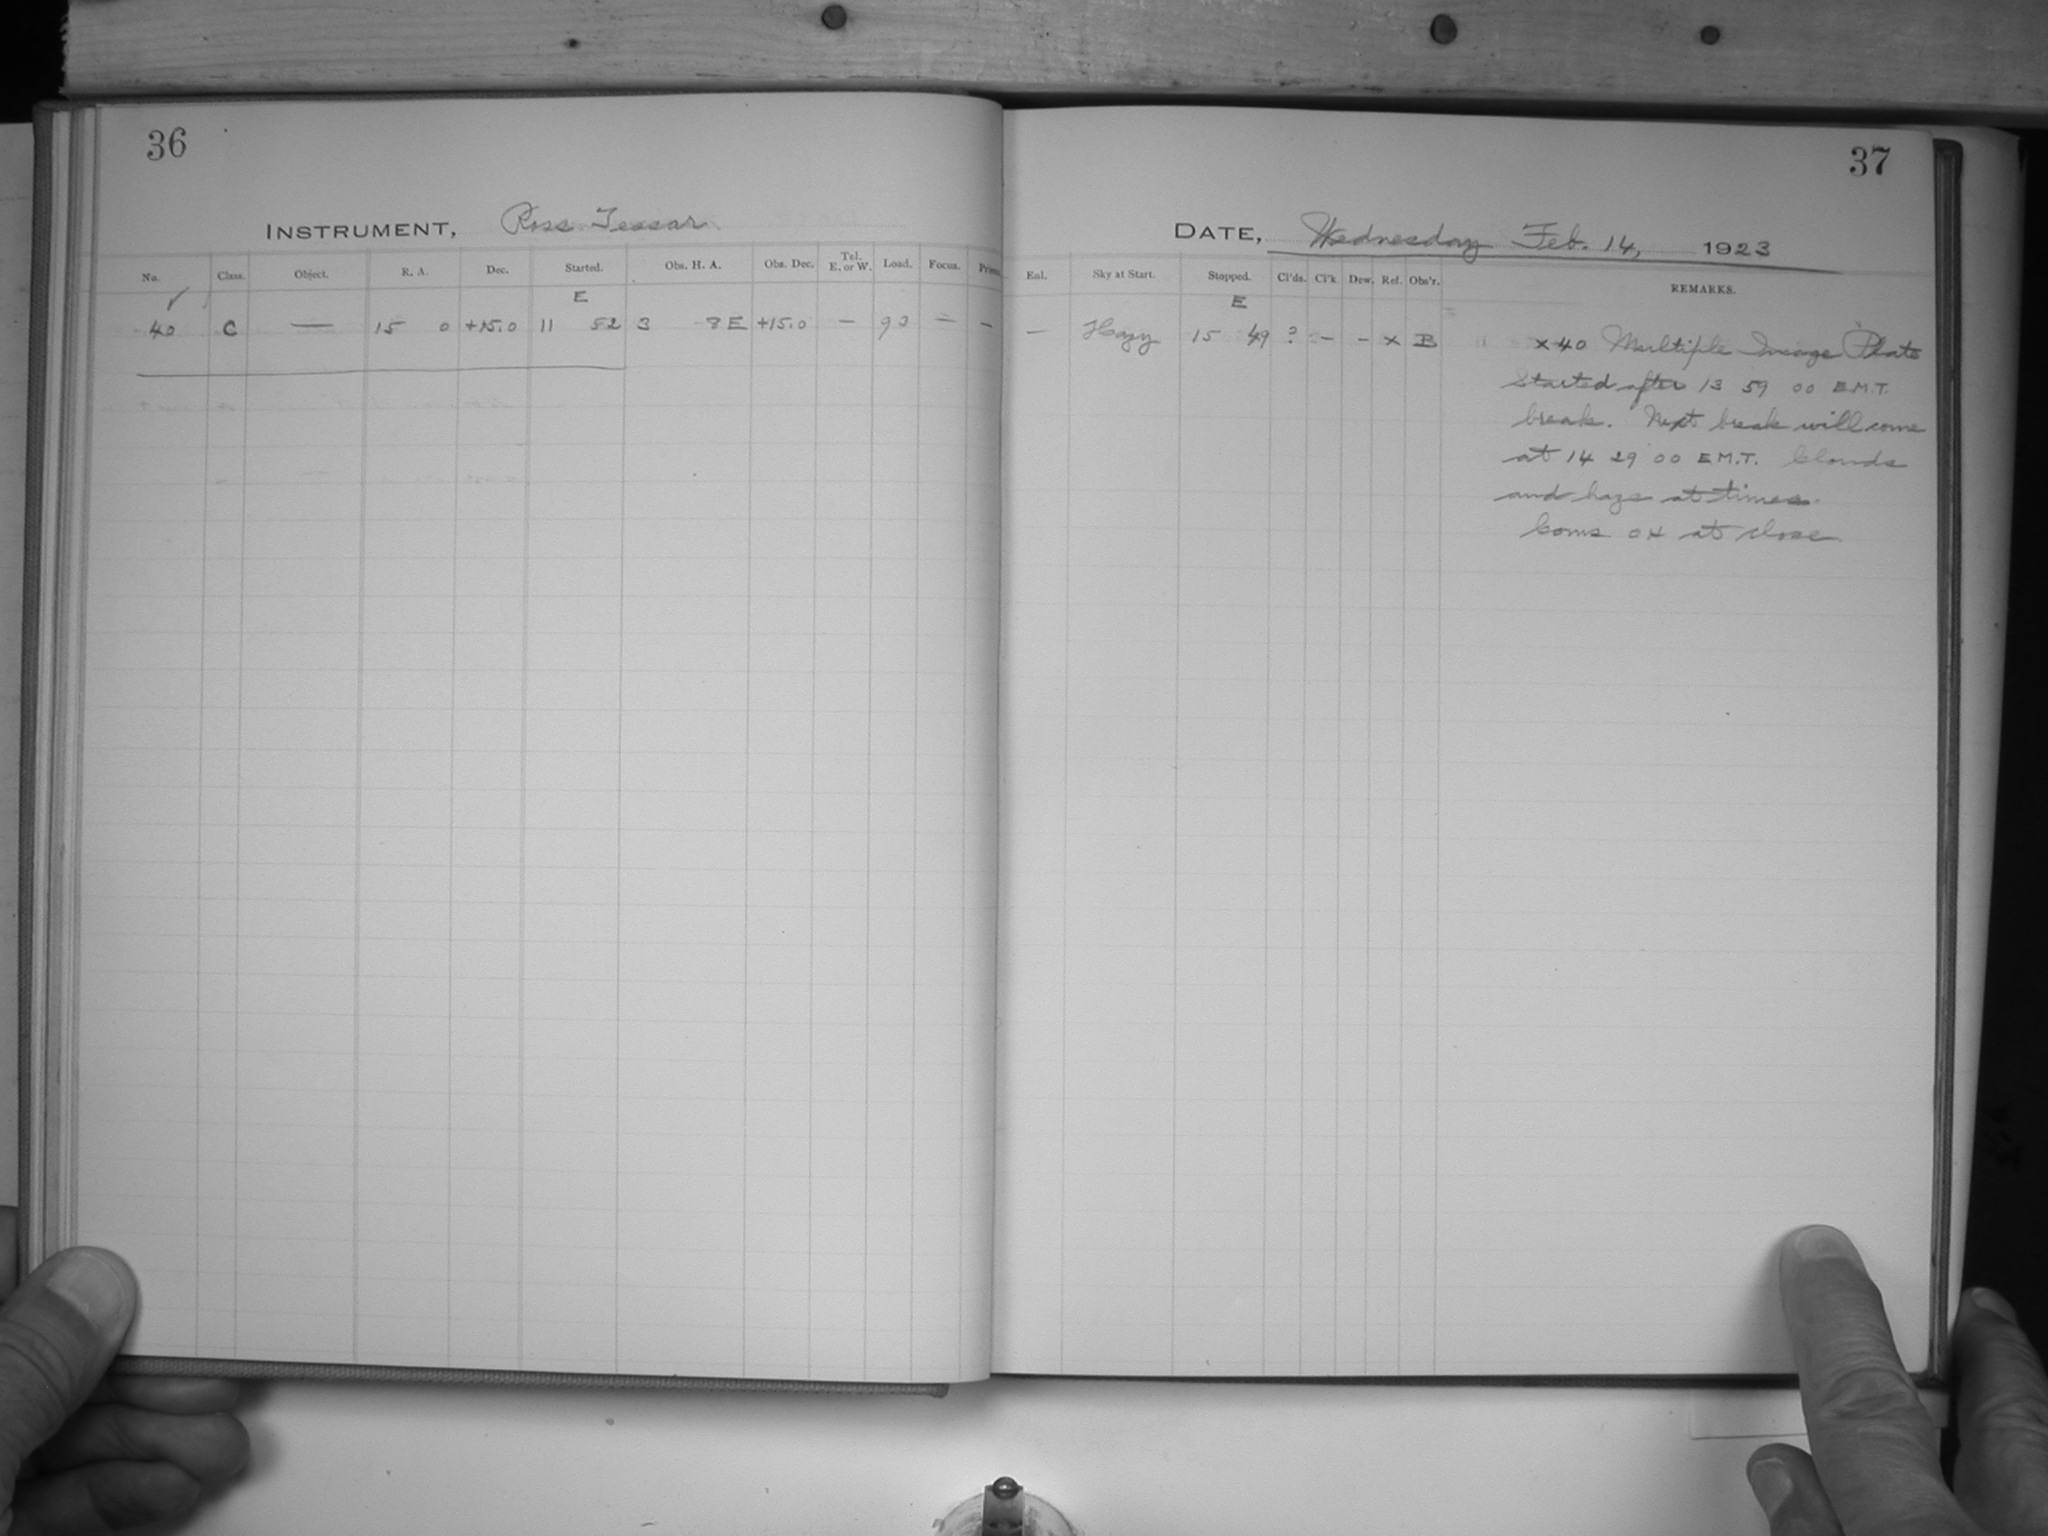 36
INSTRUMENT, Ross Tessar
No. Class. Object. R. A. Dec. Started. Obs. H. A. Obs. Dec. Tel. E. or W. Load. Focus.
E
✓
40 C — 15 0 +15.0 11 52 3 8 E +15.0 — 93 — —
37
DATE, Wednesday Feb. 14, 1923
Enl. Sky at Start. Stopped. Cl'ds. Cl'k. Dew. Ref. Obs'r. REMARKS.
E
— Hazy 15 49 ? - - x B x40 Multiple Image Plate
Started after 13 59 00 E.M.T.
break. Next break will come
at 14 29 00 E.M.T. Clouds
and haze at times.
at close